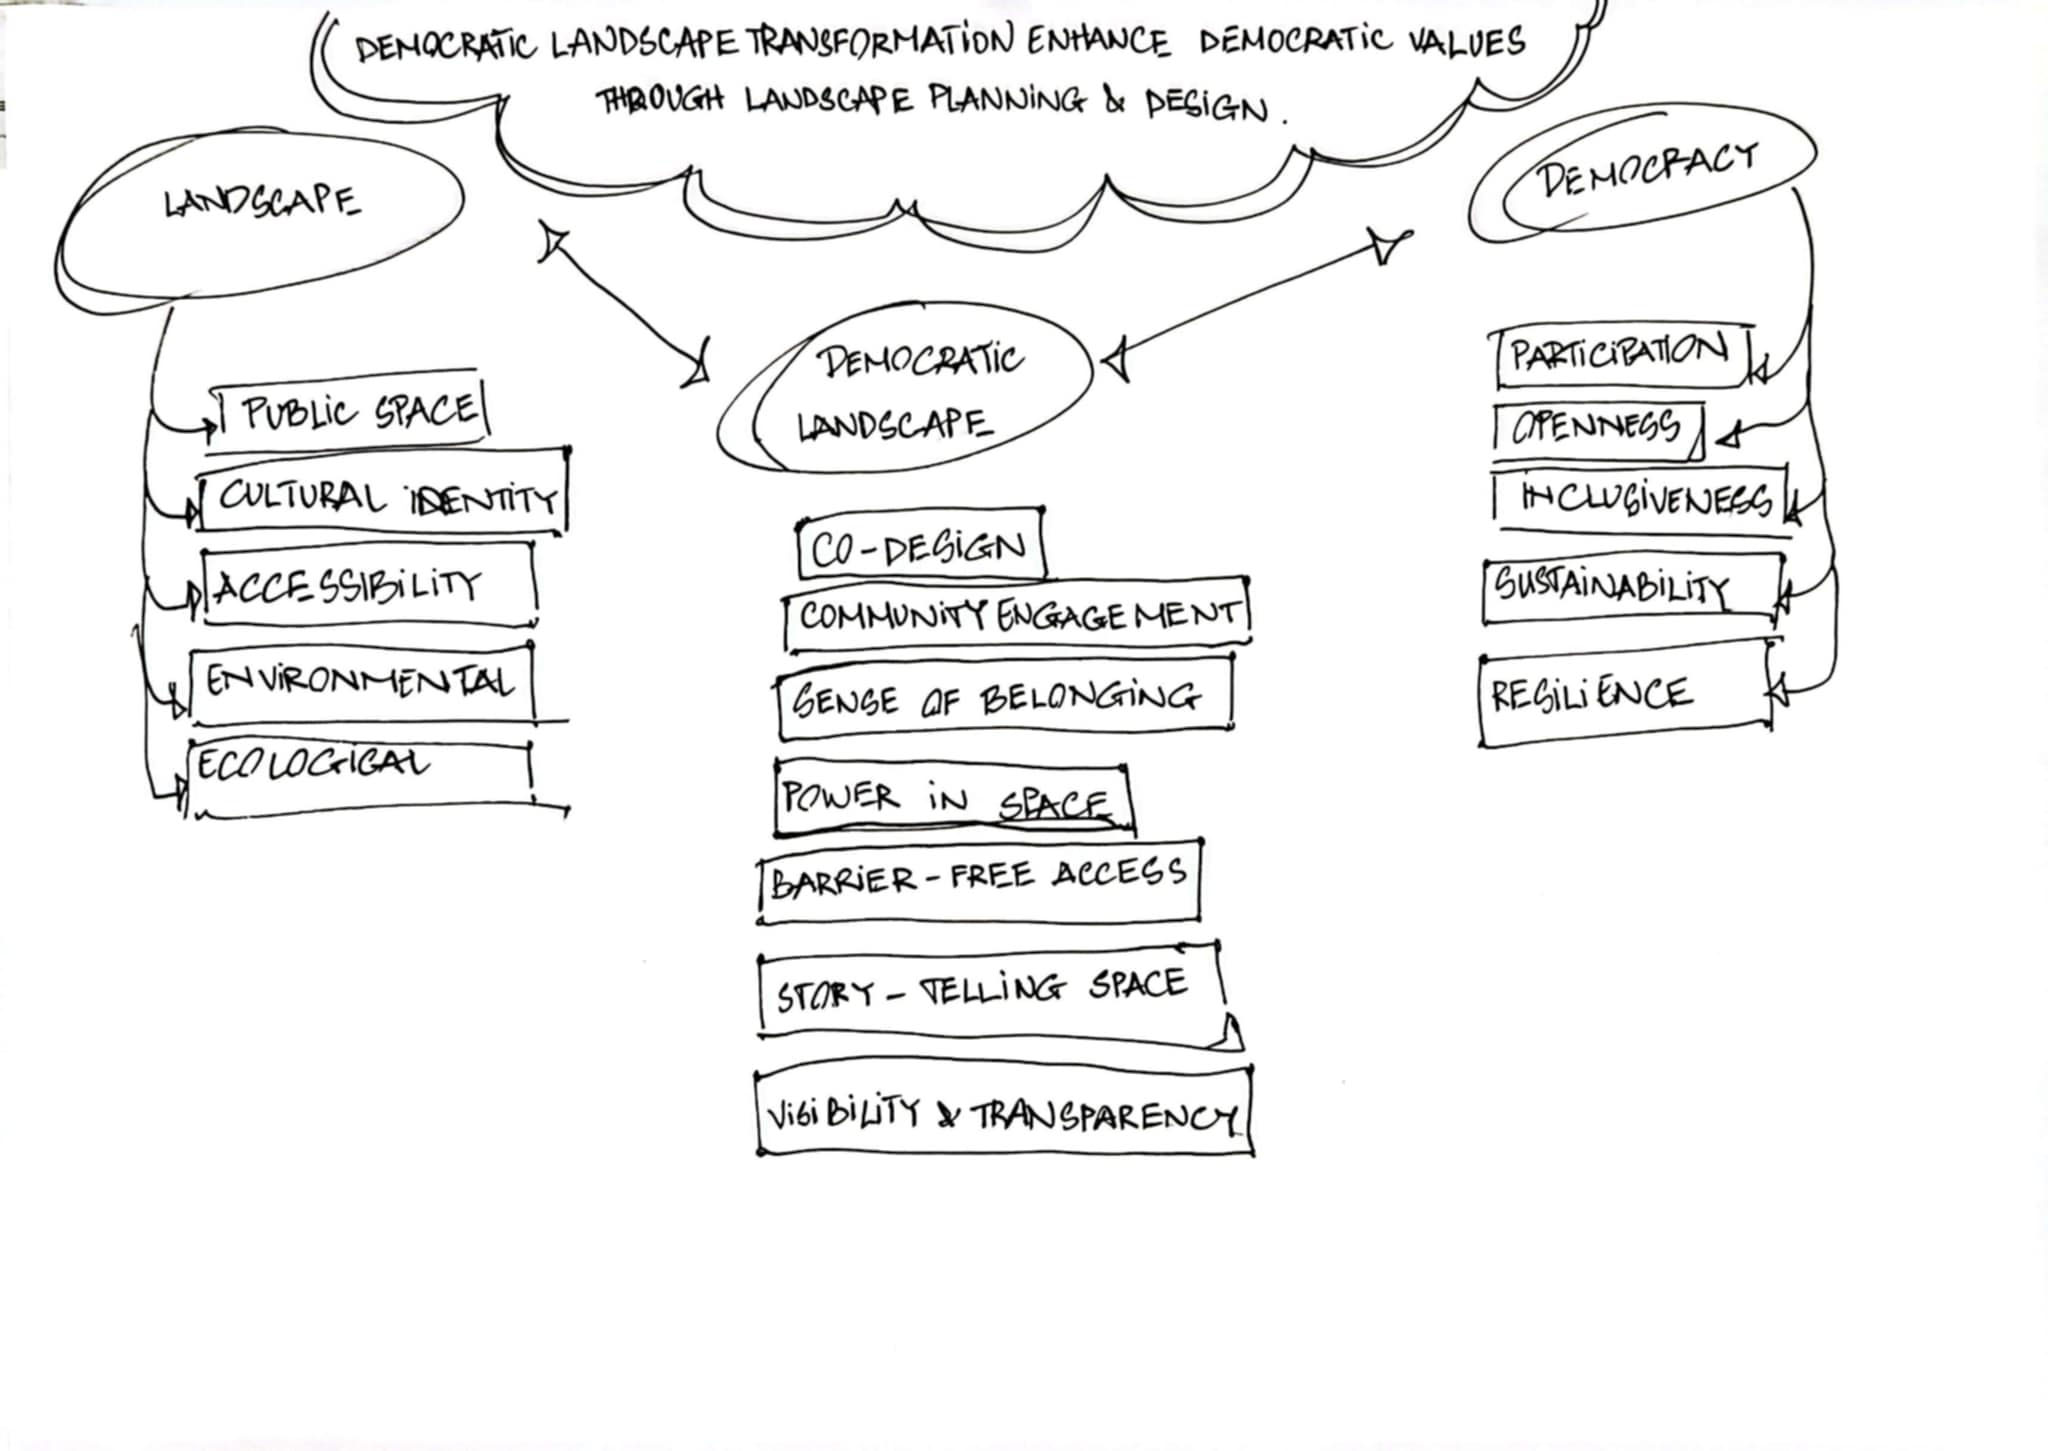 DEMOCRATIC LANDSCAPE TRANSFORMATION ENHANCE DEMOCRATIC VALUES
THROUGH LANDSCAPE PLANNING & DESIGN.
LANDSCAPE
PUBLIC SPACE
CULTURAL IDENTITY
ACCESSIBILITY
ENVIRONMENTAL
ECOLOGICAL
DEMOCRATIC
LANDSCAPE
CO-DESIGN
COMMUNITY ENGAGEMENT
SENSE OF BELONGING
POWER IN SPACE
BARRIER-FREE ACCESS
STORY-TELLING SPACE
VISIBILITY & TRANSPARENCY
DEMOCRACY
PARTICIPATION
OPENNESS
INCLUSIVENESS
SUSTAINABILITY
RESILIENCE